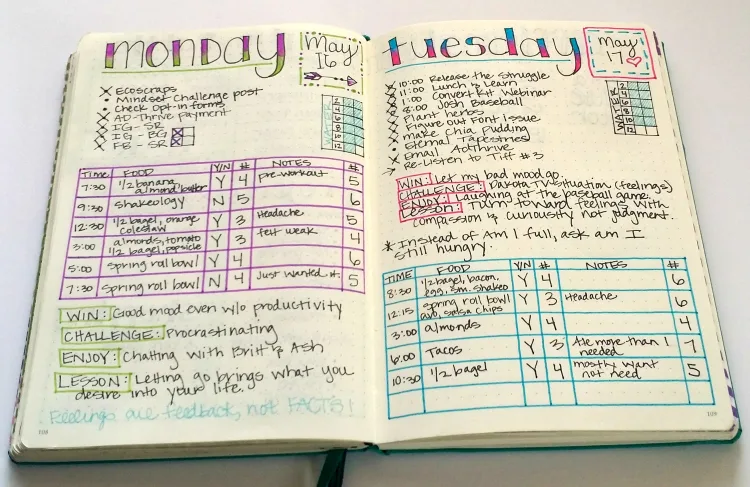 monday
May
16
X Ecoscraps
• Mindset Challenge post
• Check Opt-in forms
X AD-Thrive payment
X IG - SR
X IG - BG
X FB - SR
WATER
2
4
6
8
10
12
TIME FOOD Y/N # NOTES #
7:30 1/2 banana almond butter Y 4 pre-workout 5
9:30 shakeology N 5 6
12:30 1/2 bagel, orange coleslaw Y 3 Headache 5
3:00 almonds, tomato 1/2 bagel, popsicle Y 3 felt weak 4
5:00 spring roll bowl Y 4 6
7:30 spring roll bowl N 4 Just wanted it. 5
WIN: Good mood even w/o productivity
CHALLENGE: Procrastinating
ENJOY: Chatting with Britt & Ash
LESSON: Letting go brings what you
desire into your life.
Feelings are feedback, not FACTS!
108
tuesday
May
17
X 10:00 Release the struggle
X 11:00 Lunch & Learn
X 1:00 Convert Kit Webinar
X 8:00 Josh Baseball
X Plant herbs
X Figure out Font Issue
X Make Chia Pudding
• Eternal Tapestries
X Email AdThrive
→ Re-Listen to Tiff #3
2
4
6
8
10
12
WIN: Let my bad mood go.
CHALLENGE: Dakota situation (feelings)
ENJOY: Laughing at the baseball game.
Lesson: Turn toward feelings with
compassion & curiousity not judgment.
* Instead of Am I full, ask am I
still hungry.
TIME FOOD Y/N # NOTES #
8:30 1/2 bagel, bacon, egg, sm. shakeo Y 4 6
12:15 spring roll bowl avo, salsa chips Y 3 Headache 6
3:00 almonds Y 4 4
6:00 Tacos Y 3 Ate more than I needed 7
10:30 1/2 bagel Y 4 mostly want not need 5
109